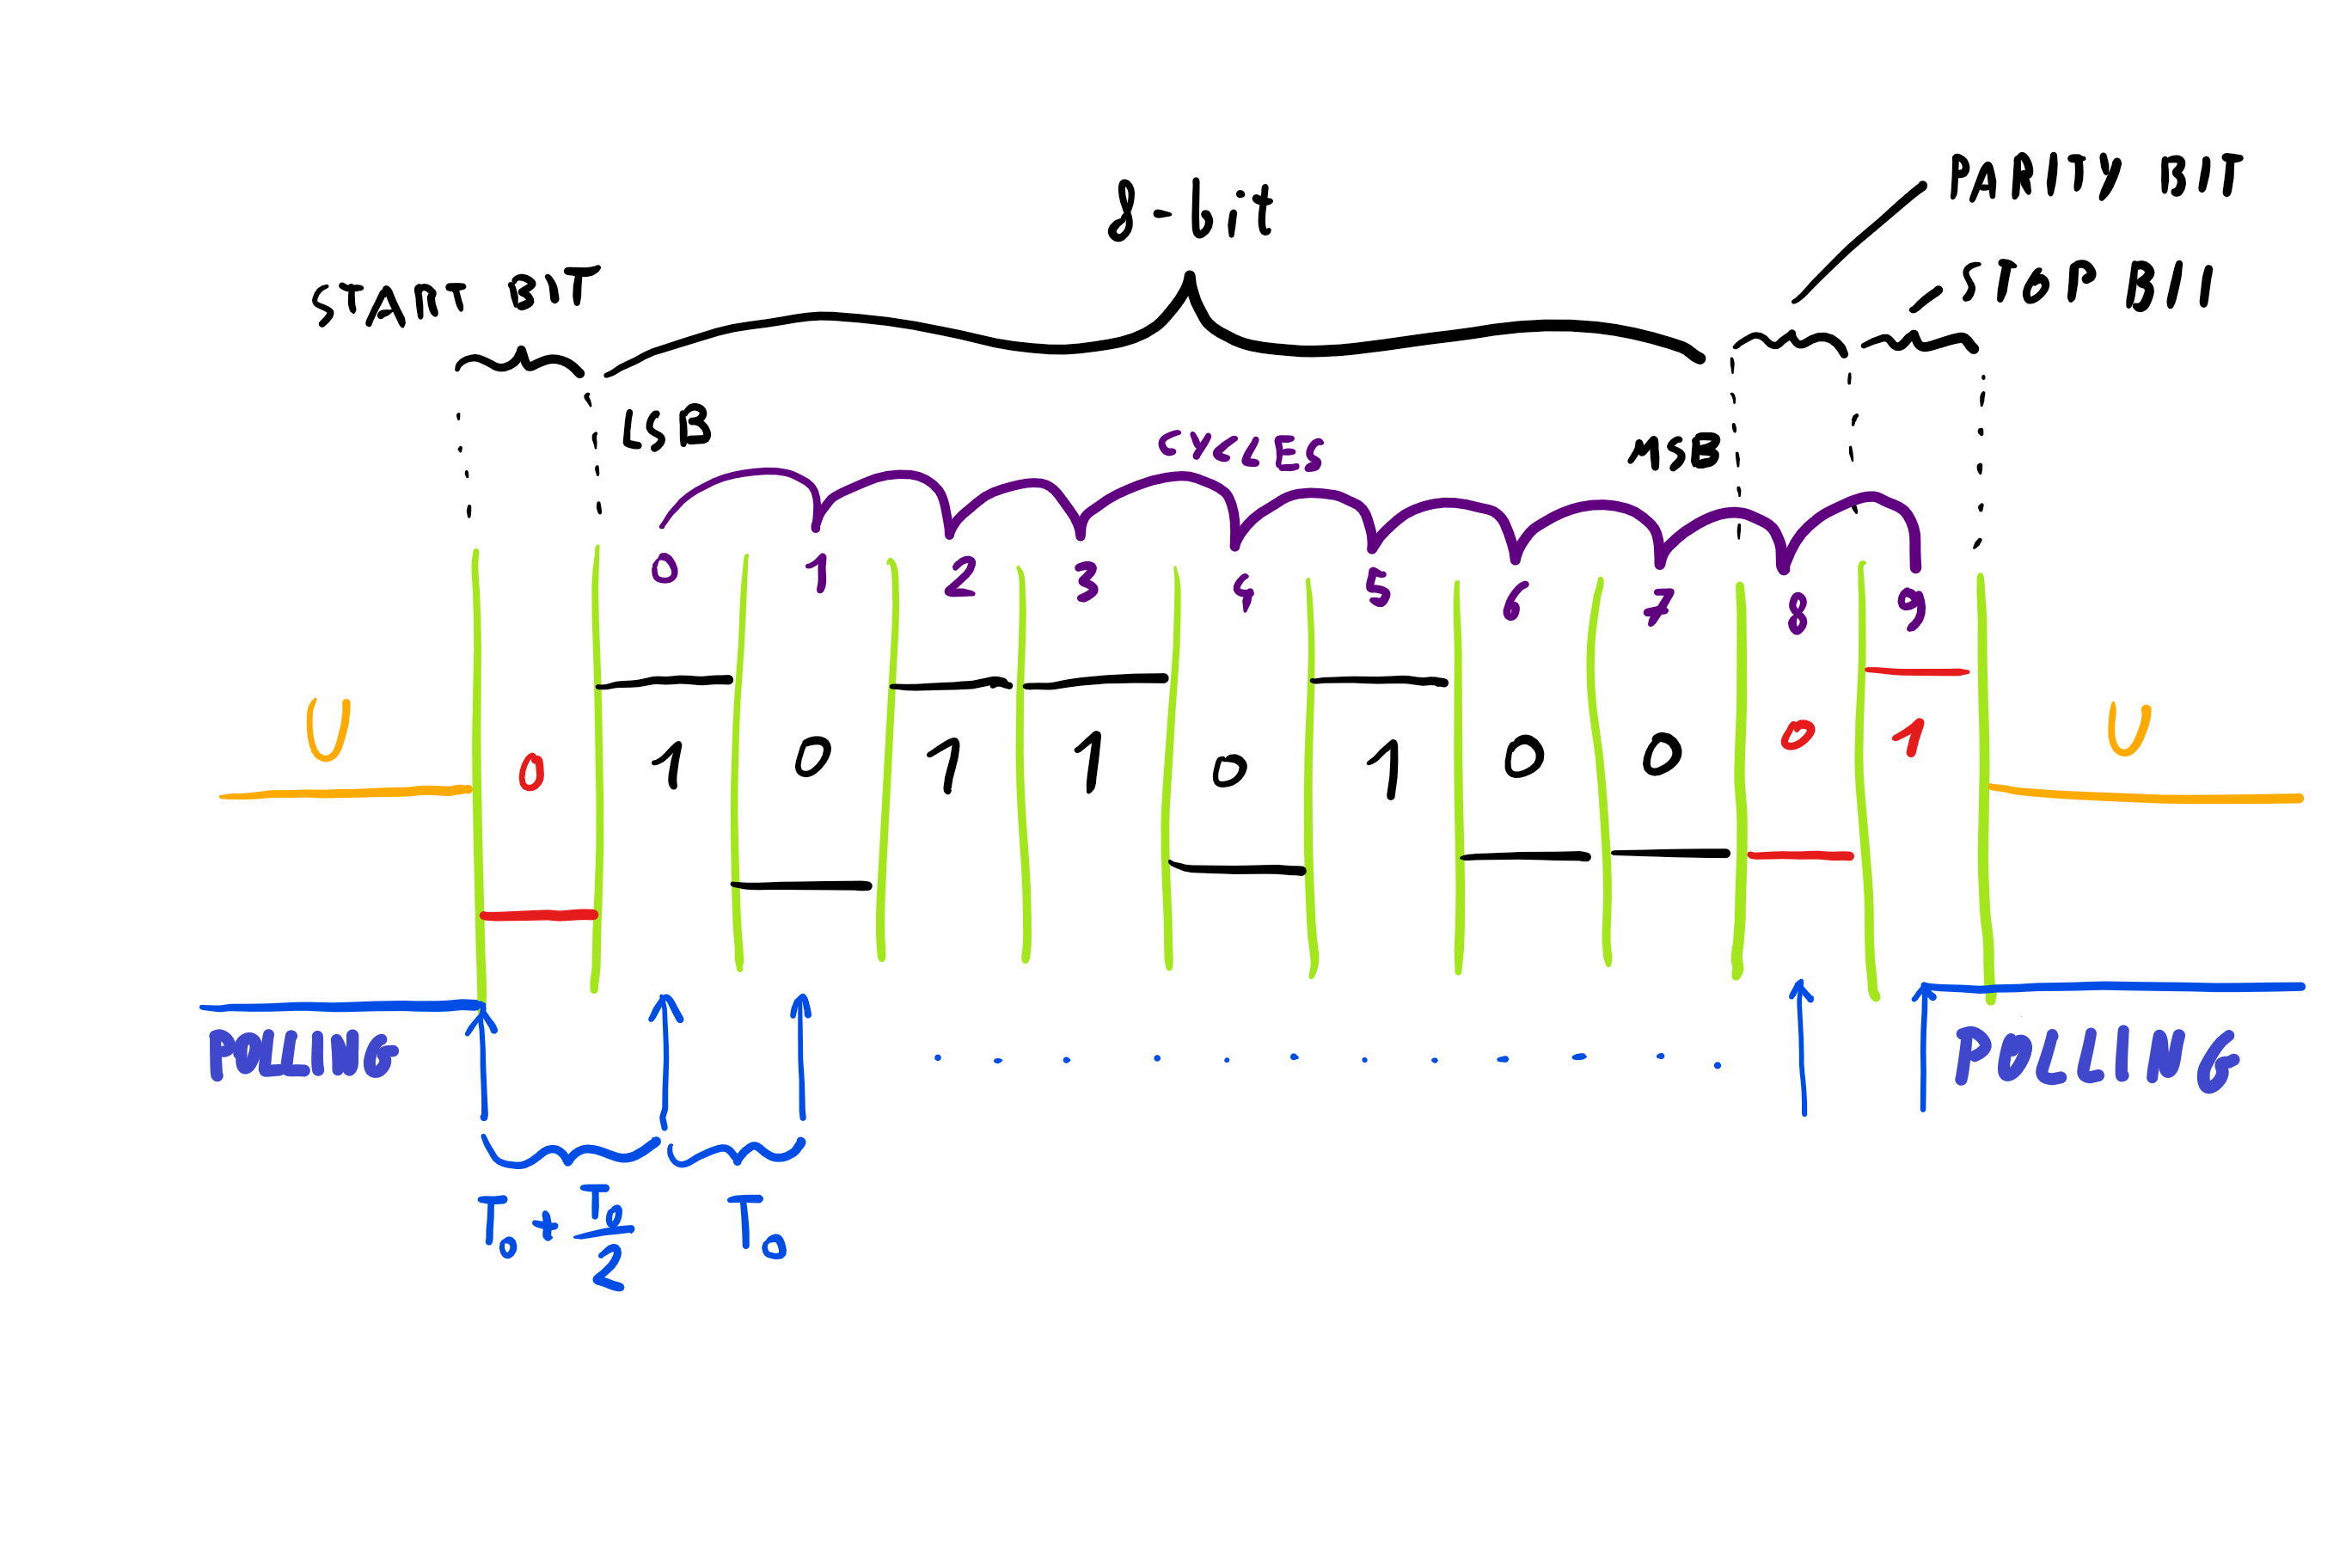 PARITY BIT
8-bit
START BIT
STOP BIT
LSB
CYCLES
MSB
0 1 2 3 4 5 6 7 8 9
U 0 1 0 1 1 0 1 0 0 0 1 U
POLLING
POLLING
T0 + T0/2
T0